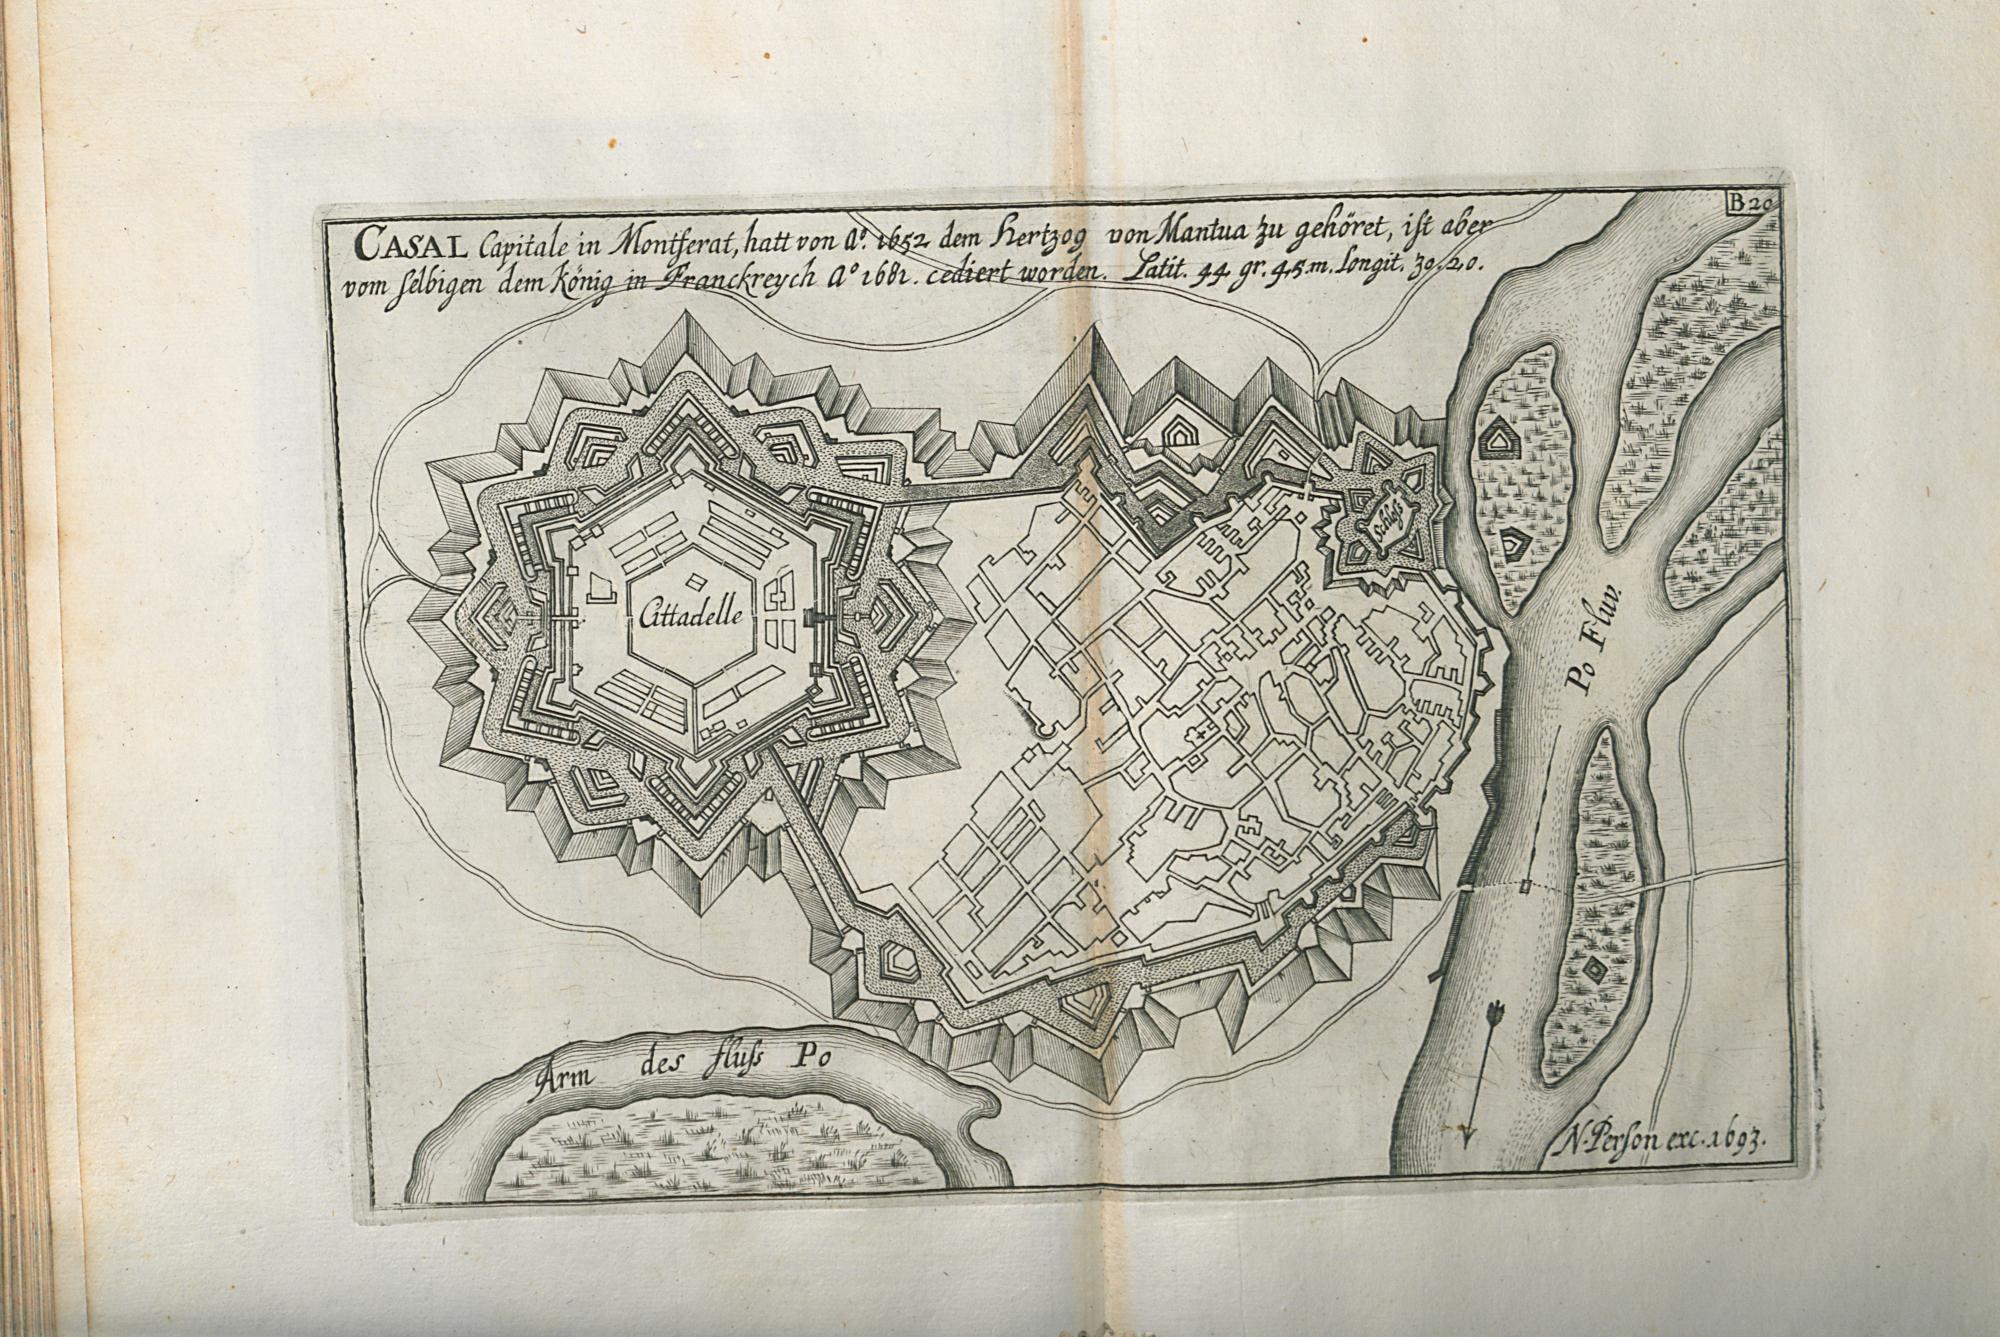 B 20
CASAL Capitale in Montferat, hatt von Aº. 1652 dem Hertzog von Mantua zu gehöret, ist aber
vom selbigen dem König in Franckreych Aº 1681. cediert worden. Latit. 44 gr. 45 m. Longit. 30. 20.
Schloſs
Cittadelle
Po Fluv.
Arm des fluſs Po
N. Perſon exc. 1693.